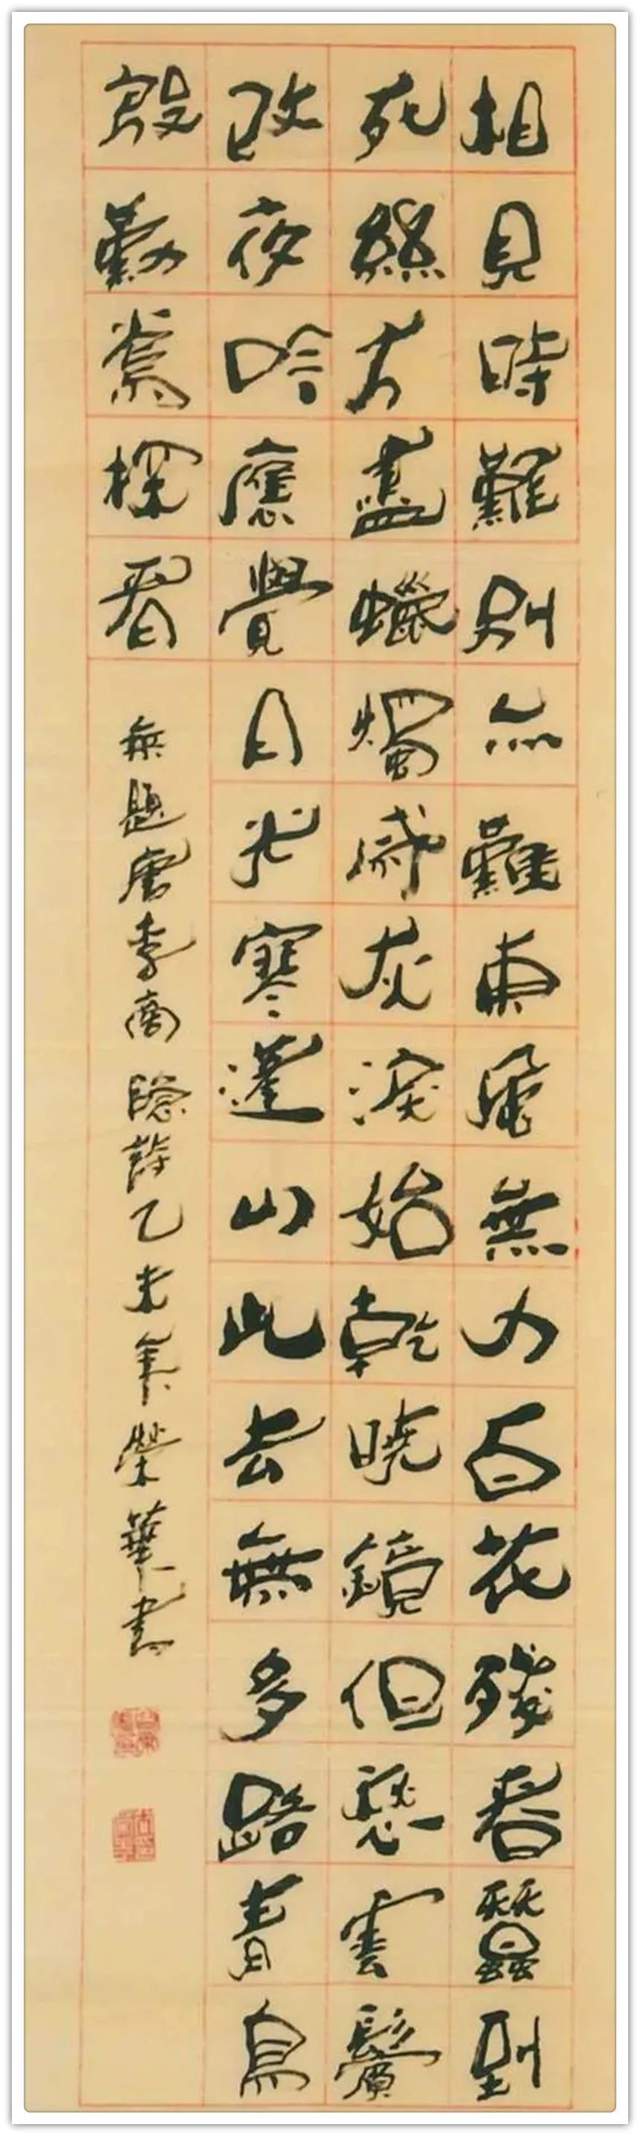 相見時難別亦難東風無力百花殘春蠶到
死絲方盡蠟燭成灰淚始乾曉鏡但愁雲鬢
改夜吟應覺月光寒蓬山此去無多路青鳥
殷勤為探看
無題唐李商隱詩乙未年榮華書